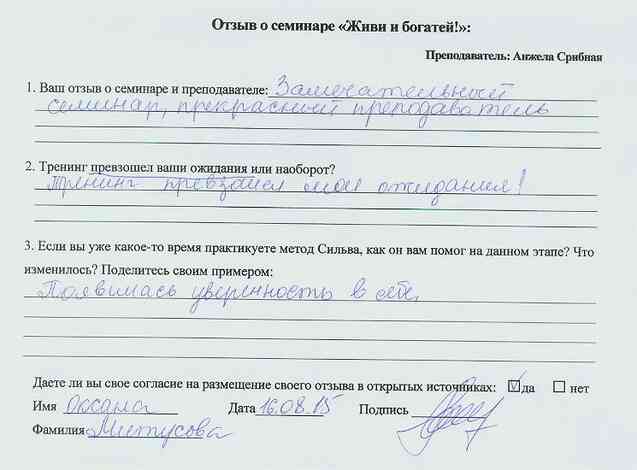 Отзыв о семинаре «Живи и богатей!»:
Преподаватель: Анжела Срибная
1. Ваш отзыв о семинаре и преподавателе: Замечательный
семинар, прекрасный преподаватель
2. Тренинг превзошел ваши ожидания или наоборот?
Тренинг превзошел мои ожидания!
3. Если вы уже какое-то время практикуете метод Сильва, как он вам помог на данном этапе? Что
изменилось? Поделитесь своим примером:
Появилась уверенность в себе
Даете ли вы свое согласие на размещение своего отзыва в открытых источниках: да нет
Имя Оксана Дата 16.08.15 Подпись
Фамилия Митусова